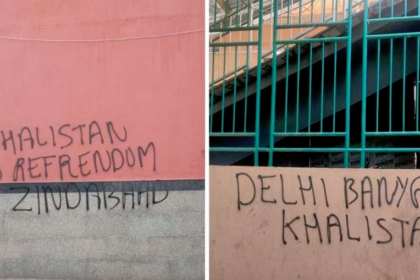 HALISTAN
REFRENDOM
ZINDABAAD
DELHI BANYG
KHALISTA